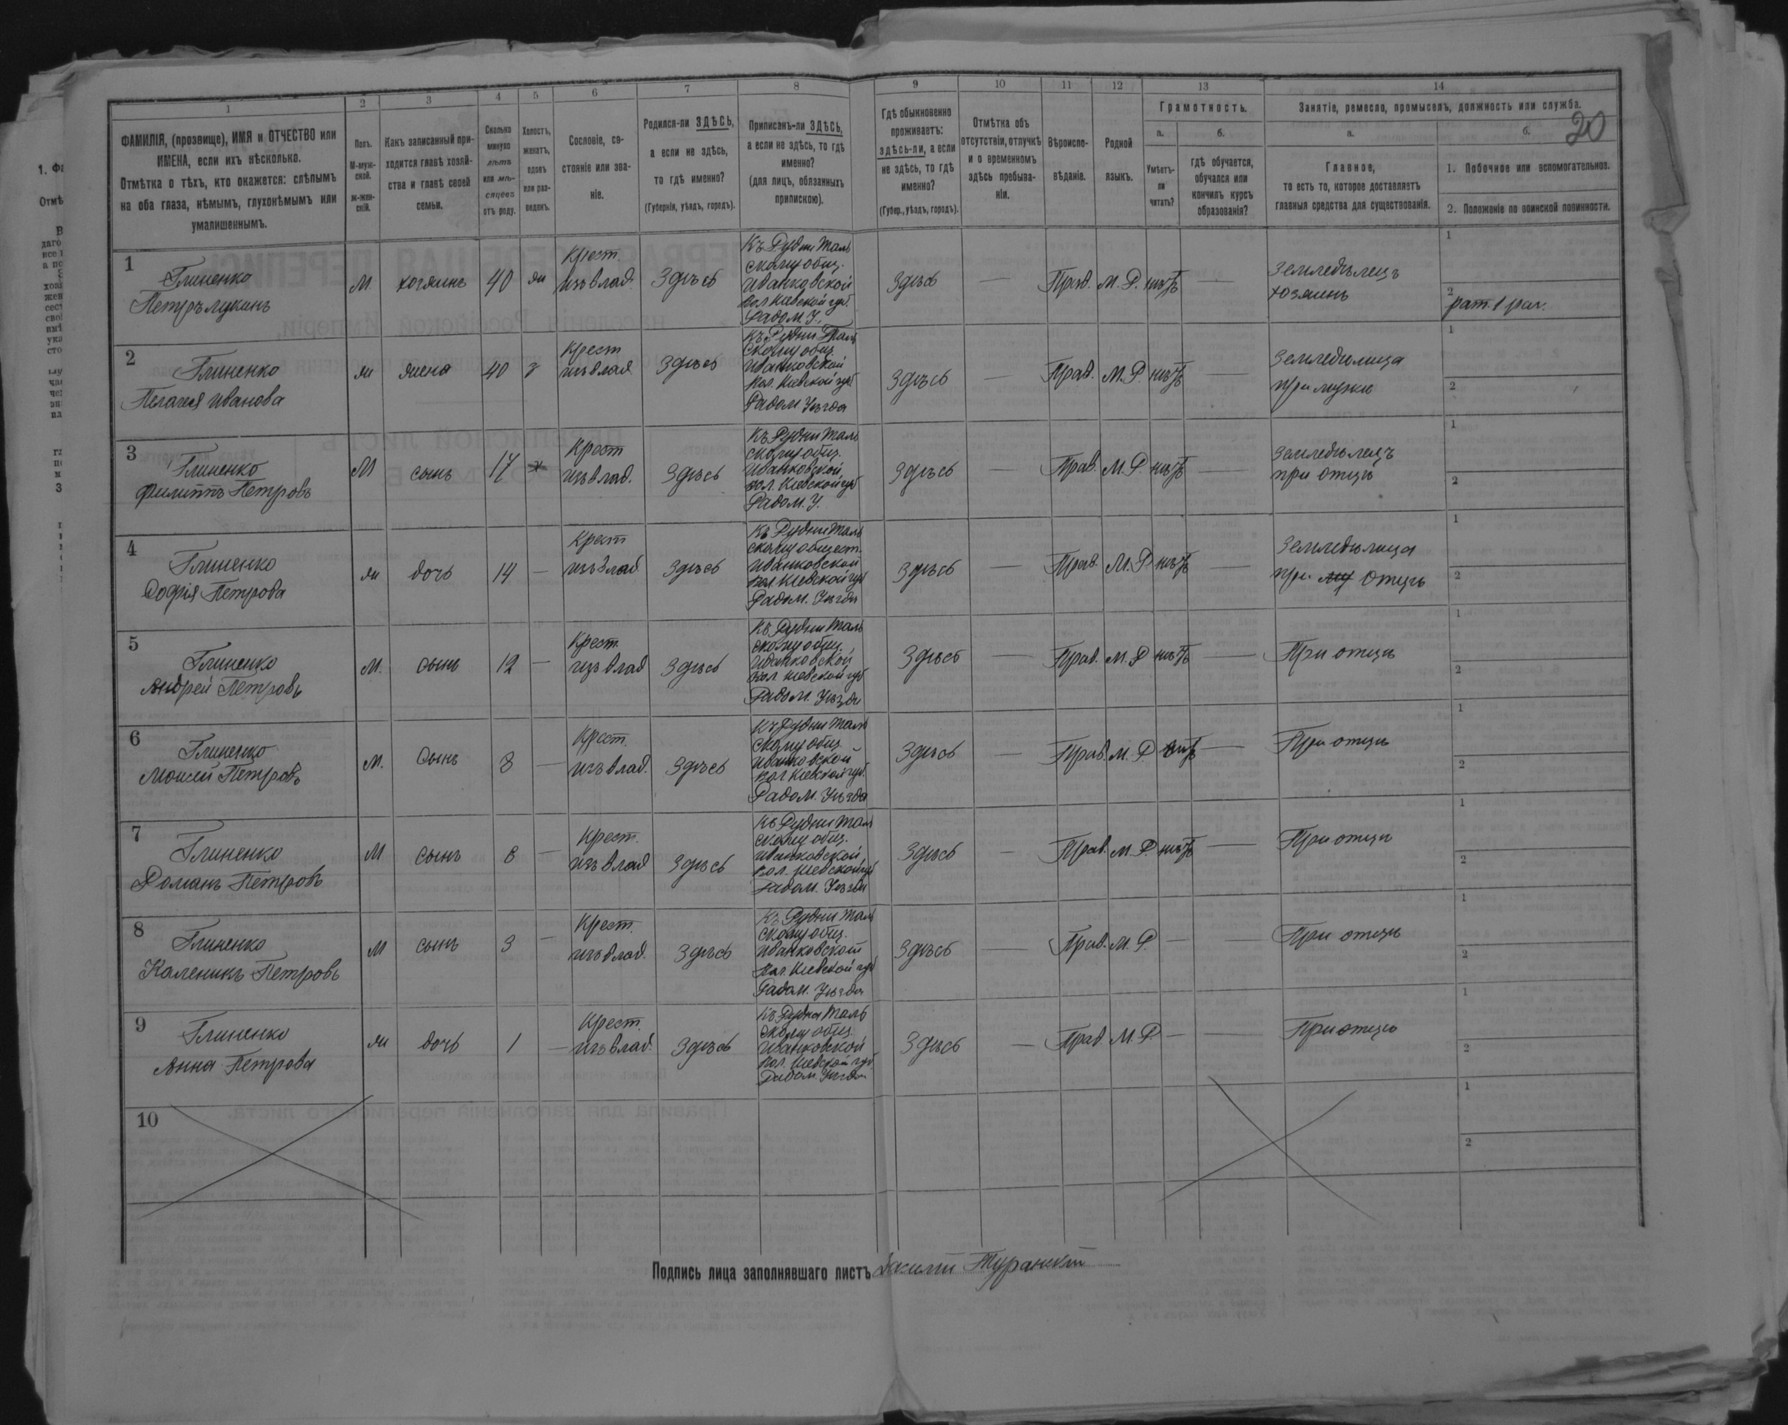 1 2 3 4 5 6 7 8 9 10 11 12 13 14
ФАМИЛІЯ, (прозвище), ИМЯ и ОТЧЕСТВО или
ИМЕНА, если ихъ нѣсколько.
Отмѣтка о тѣхъ, кто окажется: слѣпымъ
на оба глаза, нѣмымъ, глухонѣмымъ или
умалишеннымъ.
Полъ.
М-муж-
ской.
ж-жен-
скій.
Какъ записанный при-
ходится главѣ хозяй-
ства и главѣ своей
семьи.
Сколько
минуло
лѣтъ
или мѣ-
сяцевъ
отъ роду.
Холостъ,
женатъ,
вдовъ
или раз-
веденъ.
Сословіе, со-
стояніе или зва-
ніе.
Родился-ли ЗДѢСЬ,
а если не здѣсь,
то гдѣ именно?
(Губернія, уѣздъ, городъ).
Приписанъ-ли ЗДѢСЬ,
а если не здѣсь, то гдѣ
именно?
(для лицъ, обязанныхъ
припискою).
Гдѣ обыкновенно
проживаетъ:
здѣсь-ли, а если
не здѣсь, то гдѣ
именно?
(Губер., уѣздъ, городъ).
Отмѣтка объ
отсутствіи, отлучкѣ
и о временномъ
здѣсь пребыва-
ніи.
Вѣроиспо-
вѣданіе.
Родной
языкъ.
Грамотность.
а.
Умѣетъ-
ли
читать?
б.
гдѣ обучается,
обучался или
кончилъ курсъ
образованія?
Занятіе, ремесло, промыселъ, должность или служба.
а.
Главное,
то есть то, которое доставляетъ
главныя средства для существованія.
б.
20
1. Побочное или вспомогательное.
2. Положеніе по воинской повинности.
1
Глиненко
Петръ Лукинъ
М хозяинъ 40 ж
Крест
изъ влад.
Здѣсь
Къ Рудни Таль
скому общ.
Иванковской
вол Кіевской губ.
Радом. У.
Здѣсь — Прав. М. Р. нѣтъ —
Земледѣлецъ
хозяинъ
1
2
рат. 1 раз.
2
Глиненко
Пелагея Иванова
ж жена 40 з
Крест
изъ влад
Здѣсь
Къ Рудни Таль
скому общ.
Иванковской
вол. Кіевской губ
Радом. Уѣзда
Здѣсь — Прав. М. Р. нѣтъ —
Земледѣлица
при мужѣ
1
2
3
Глиненко
Филиппъ Петровъ
М сынъ 17 х
Крест
изъ влад.
Здѣсь
Къ Рудни Таль
скому общ.
Иванковской
вол. Кіевской губ
Радом. У.
Здѣсь — Прав. М. Р. нѣтъ —
Земледѣлецъ
при отцѣ
1
2
4
Глиненко
Софія Петрова
ж дочь 14 —
Крест
изъ влад
Здѣсь
Къ Рудни Таль
скому общест.
Иванковской
вол. Кіевской губ
Радом. Уѣзда
Здѣсь — Прав. М. Р. нѣтъ —
Земледѣлица
при отцѣ
1
2
5
Глиненко
Андрей Петровъ
М. сынъ 12 —
Крест
изъ влад
Здѣсь
Къ Рудни Таль
скому общ.
Иванковской
вол. Кіевской губ
Радом. Уѣзда
Здѣсь — Прав. М. Р. нѣтъ —
При отцѣ
1
2
6
Глиненко
Моисей Петровъ
М. сынъ 8 —
Крест
изъ влад.
Здѣсь
Къ Рудни Таль
скому общ.
Иванковской
вол. Кіевской губ.
Радом. Уѣзда
Здѣсь — Прав. М. Р. нѣтъ —
При отцѣ
1
2
7
Глиненко
Романъ Петровъ
М сынъ 6 —
Крест.
изъ влад
Здѣсь
Къ Рудни Таль
скому общ.
Иванковской
вол. Кіевской губ
Радом. Уѣзда
Здѣсь — Прав. М. Р. нѣтъ —
При отцѣ
1
2
8
Глиненко
Каленикъ Петровъ
М сынъ 3 —
Крест.
изъ влад.
Здѣсь
Къ Рудни Таль
скому общ.
Иванковской
вол. Кіевской губ
Радом. Уѣзда
Здѣсь — Прав. М. Р. — —
При отцѣ
1
2
9
Глиненко
Анна Петрова
ж дочь 1 —
Крест.
изъ влад.
Здѣсь
Къ Рудни Таль
скому общ.
Иванковской
вол. Кіевской губ
Радом. Уѣзда
Здѣсь — Прав М. Р. — —
При отцѣ
1
2
10
1
2
Подпись лица заполнявшаго листъ Василій Туранскій